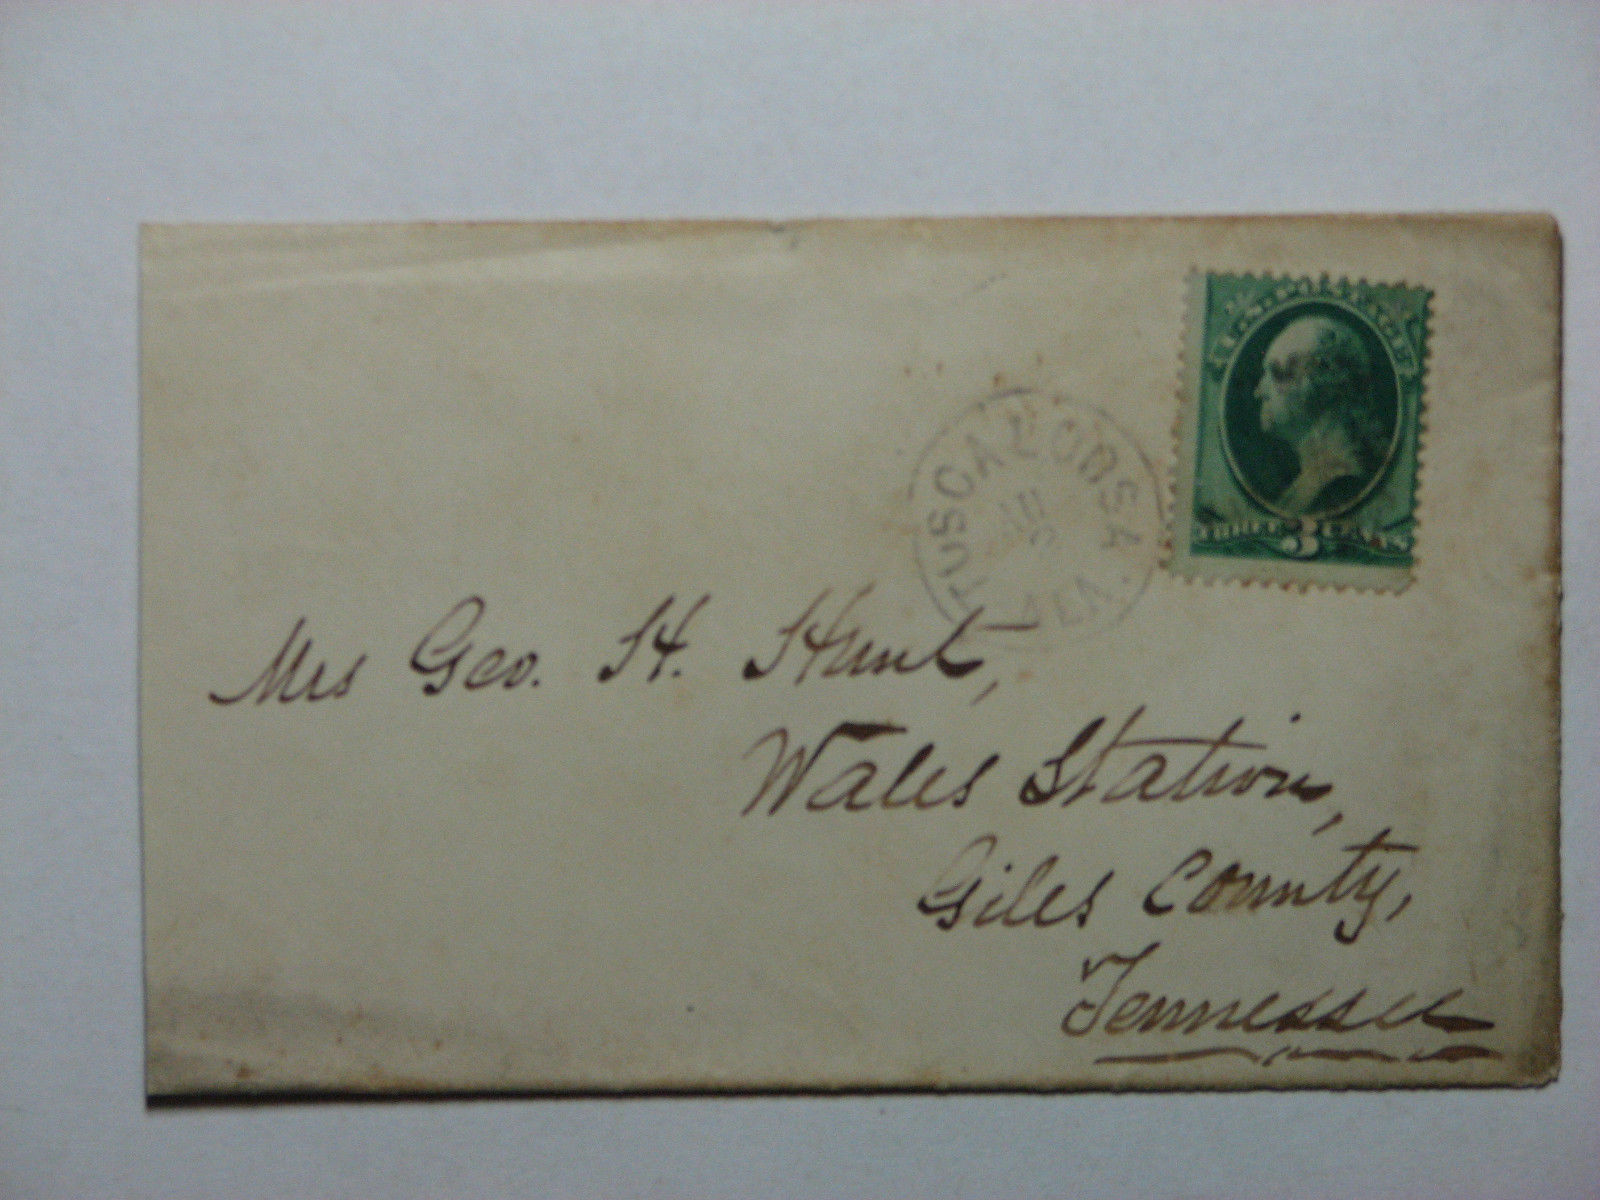 U.S. POSTAGE
THREE 3 CENTS
TUSCALOOSA
ALA.
Mrs Geo. H. Hunt,
Wales Station,
Giles County,
Tennessee